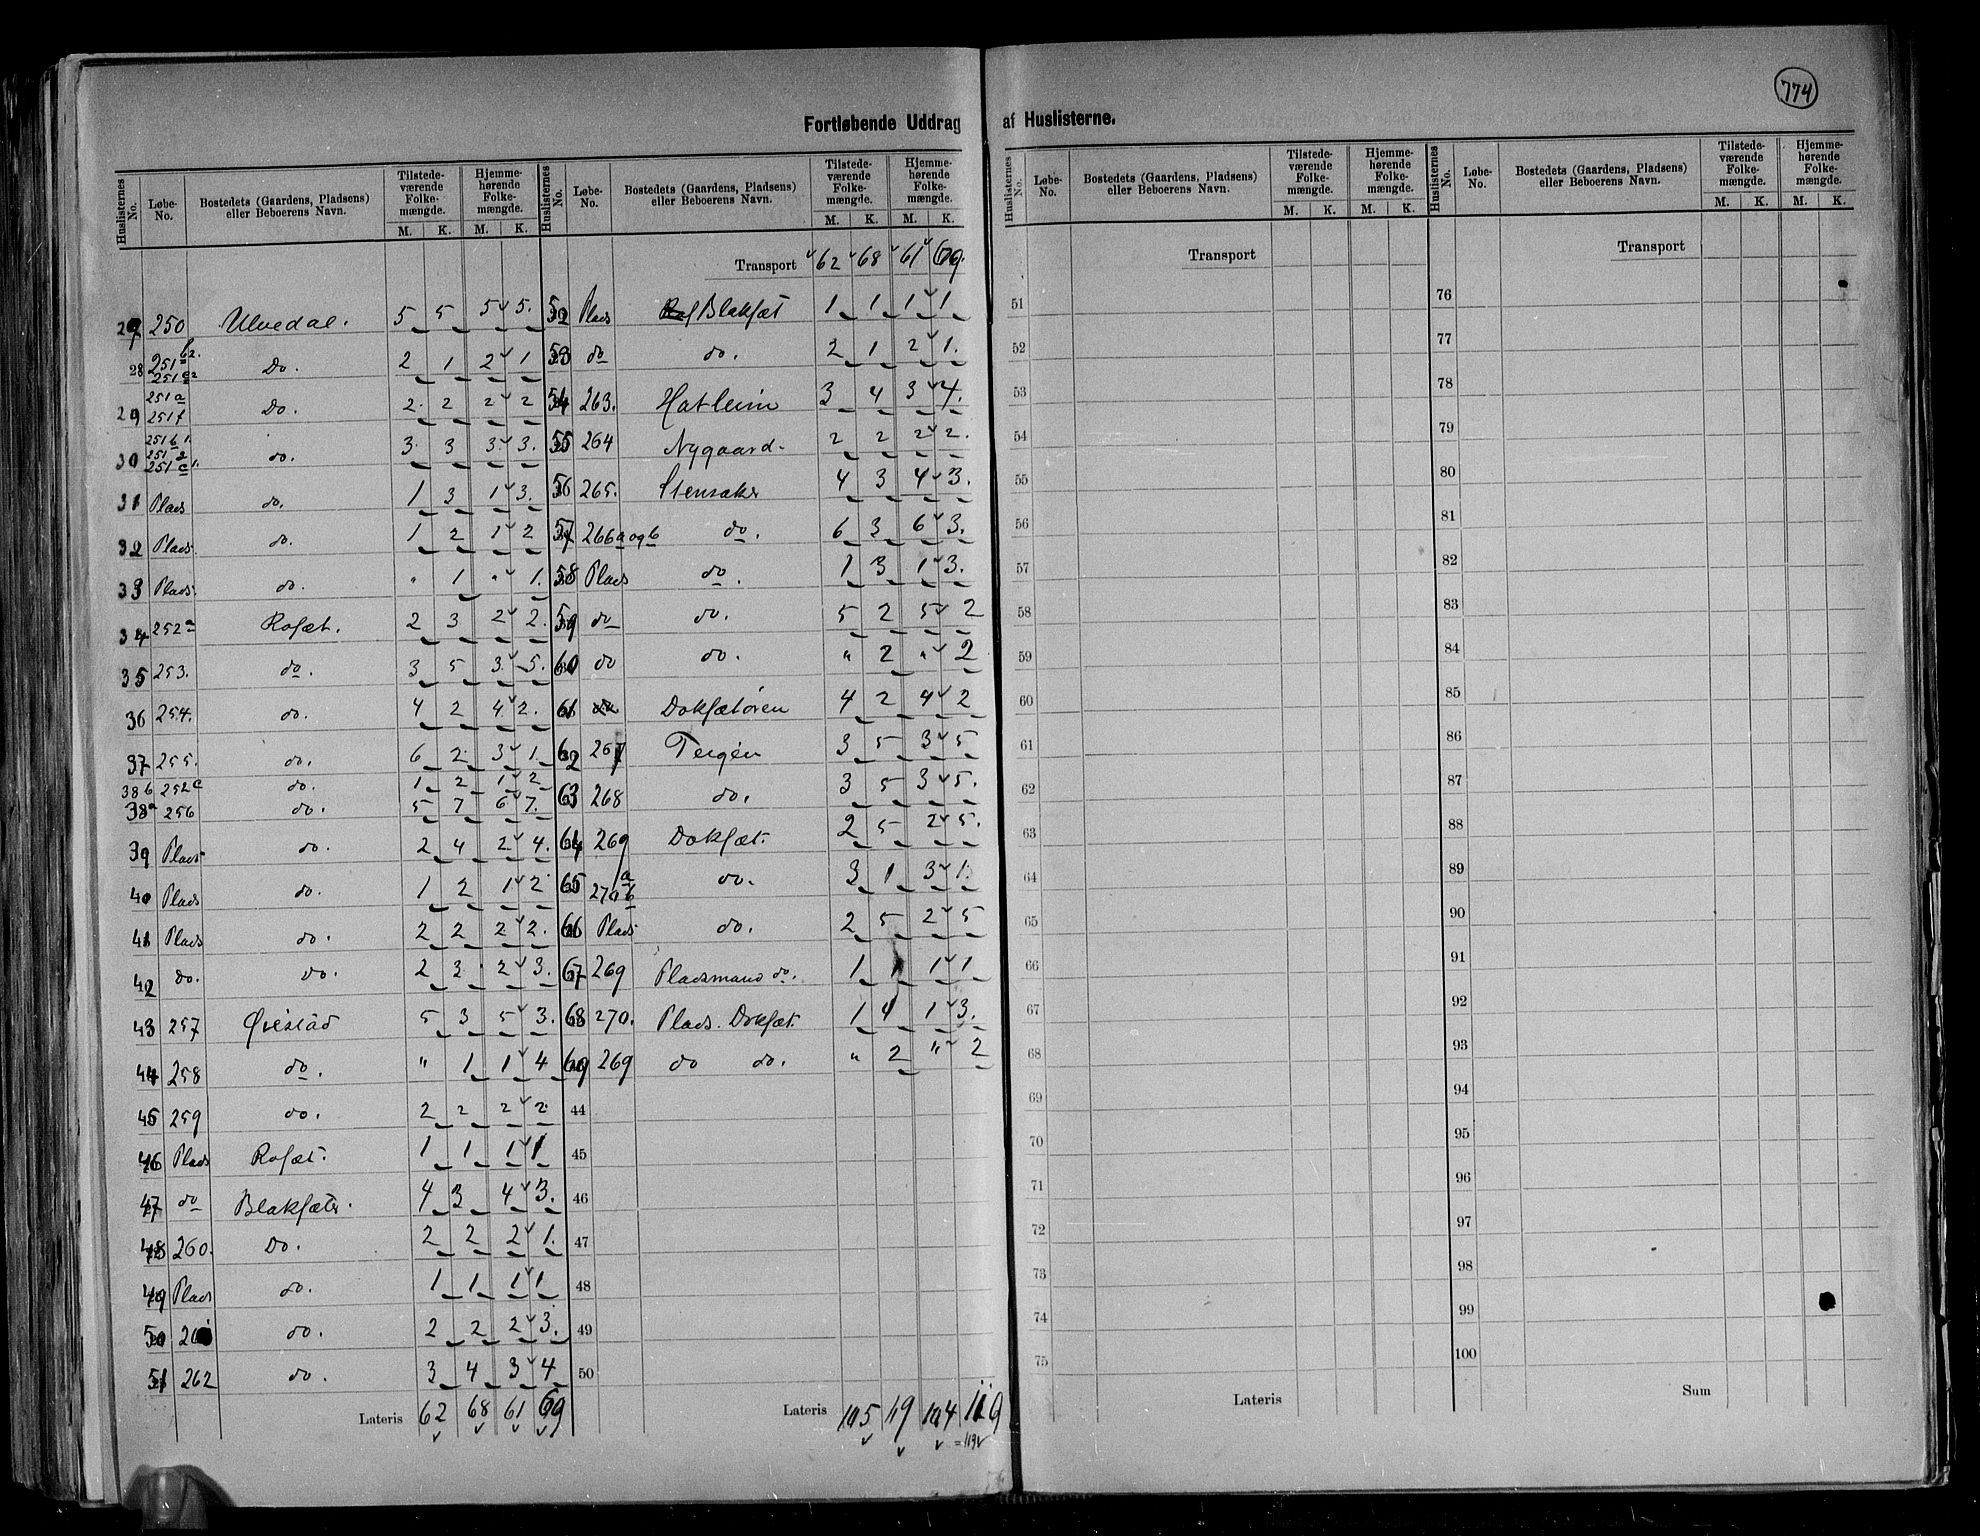 774
Fortløbende Uddrag af Huslisterne.
Huslisternes No. Løbe-No. Bostedets (Gaardens, Pladsens) eller Beboerens Navn. Tilstedeværende Folkemængde. M. K. Hjemmehørende Folkemængde. M. K.
27 250 Ulvedal. 5 5 5 5.
28 251 b2. 251 c2 Do. 2 1 2 1
29 251 a 251 f Do. 2 2 2 2
30 251 b 1. 251 251 c 1. do. 3 3 3 3.
31 Plads do. 1 3 1 3.
32 Plads. do. 1 2 1 2
33 Plads. do. " 1 " 1.
34 252 a Rosæt. 2 3 2 2.
35 253. do. 3 5 3 5.
36 254. do. 4 2 4 2.
37 255. do. 6 2 3 1.
38 b 252 c do. 1 2 1 2
38 a 256 do. 5 7 6 7.
39 Plads do. 2 4 2 4.
40 Plads do. 1 2 1 2
41 Plads do. 2 2 2 2.
42 do. do. 2 3 2 3.
43 257 5 3 5 3.
44 258 do. " 1 1 4
45 259 do. 2 2 2 2
46 Plads Rosæt. 1 1 1 1
47 do Blaksæter. 4 3 4 3.
48 260. Do. 2 2 2 1.
49 Plads do. 1 1 1 1
50 do. 2 2 2 3.
51 262 do. 3 4 3 4
Lateris 62 68 61 69
Huslisternes No. Løbe-No. Bostedets (Gaardens, Pladsens) eller Beboerens Navn. Tilstedeværende Folkemængde. M. K. Hjemmehørende Folkemængde. M. K.
Transport 62 68 61 69.
52 Plads Blaksæt 1 1 1 1
53 do do. 2 1 2 1.
54 263. Hatleim 3 4 3 4.
55 264 Nygaard. 2 2 2 2.
56 265. Stensaker 4 3 4 3.
57 266 a og b do. 6 3 6 3.
58 Plads do. 1 3 1 3.
59 do do. 5 2 5 2
60 do do. " 2 " 2
61 do Doksætøren 4 2 4 2
62 267 Tergen 3 5 3 5
63 268 do. 3 5 3 5.
64 269 Doksæt. 2 5 2 5.
65 270 a b do. 3 1 3 1.
66 Plads do. 2 5 2 5
67 269 Pladsmand do. 1 1 1 1
68 270. Plads. Doksæt. 1 4 1 3.
69 269 do do. " 2 " 2
44
45
46
47
48
49
50
Lateris 105 119 104 119
= 119
Huslisternes No. Løbe-No. Bostedets (Gaardens, Pladsens) eller Beboerens Navn. Tilstedeværende Folkemængde. M. K. Hjemmehørende Folkemængde. M. K.
Transport
51
52
53
54
55
56
57
58
59
60
61
62
63
64
65
66
67
68
69
70
71
72
73
74
75
Lateris
Huslisternes No. Løbe-No. Bostedets (Gaardens, Pladsens) eller Beboerens Navn. Tilstedeværende Folkemængde. M. K. Hjemmehørende Folkemængde. M. K.
Transport
76
77
78
79
80
81
82
83
84
85
86
87
88
89
90
91
92
93
94
95
96
97
98
99
100
Sum